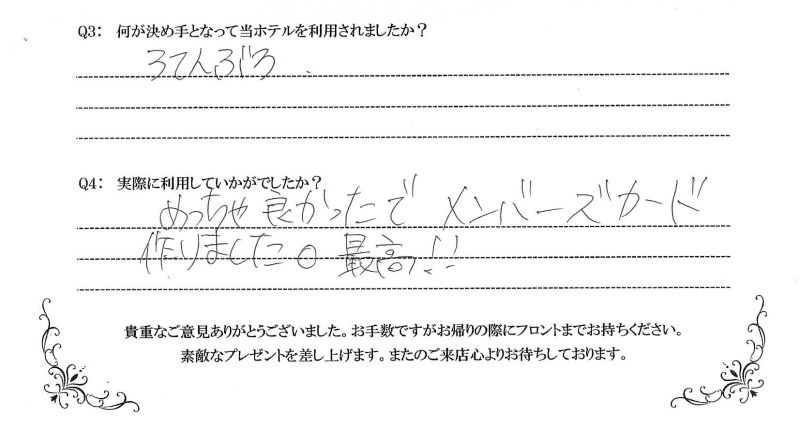 Q3: 何が決め手となって当ホテルを利用されましたか?
ろてんぶろ
Q4: 実際に利用していかがでしたか?
めっちゃ良かったで メンバーズカード
作りました。最高!!
貴重なご意見ありがとうございました。お手数ですがお帰りの際にフロントまでお持ちください。
素敵なプレゼントを差し上げます。またのご来店心よりお待ちしております。